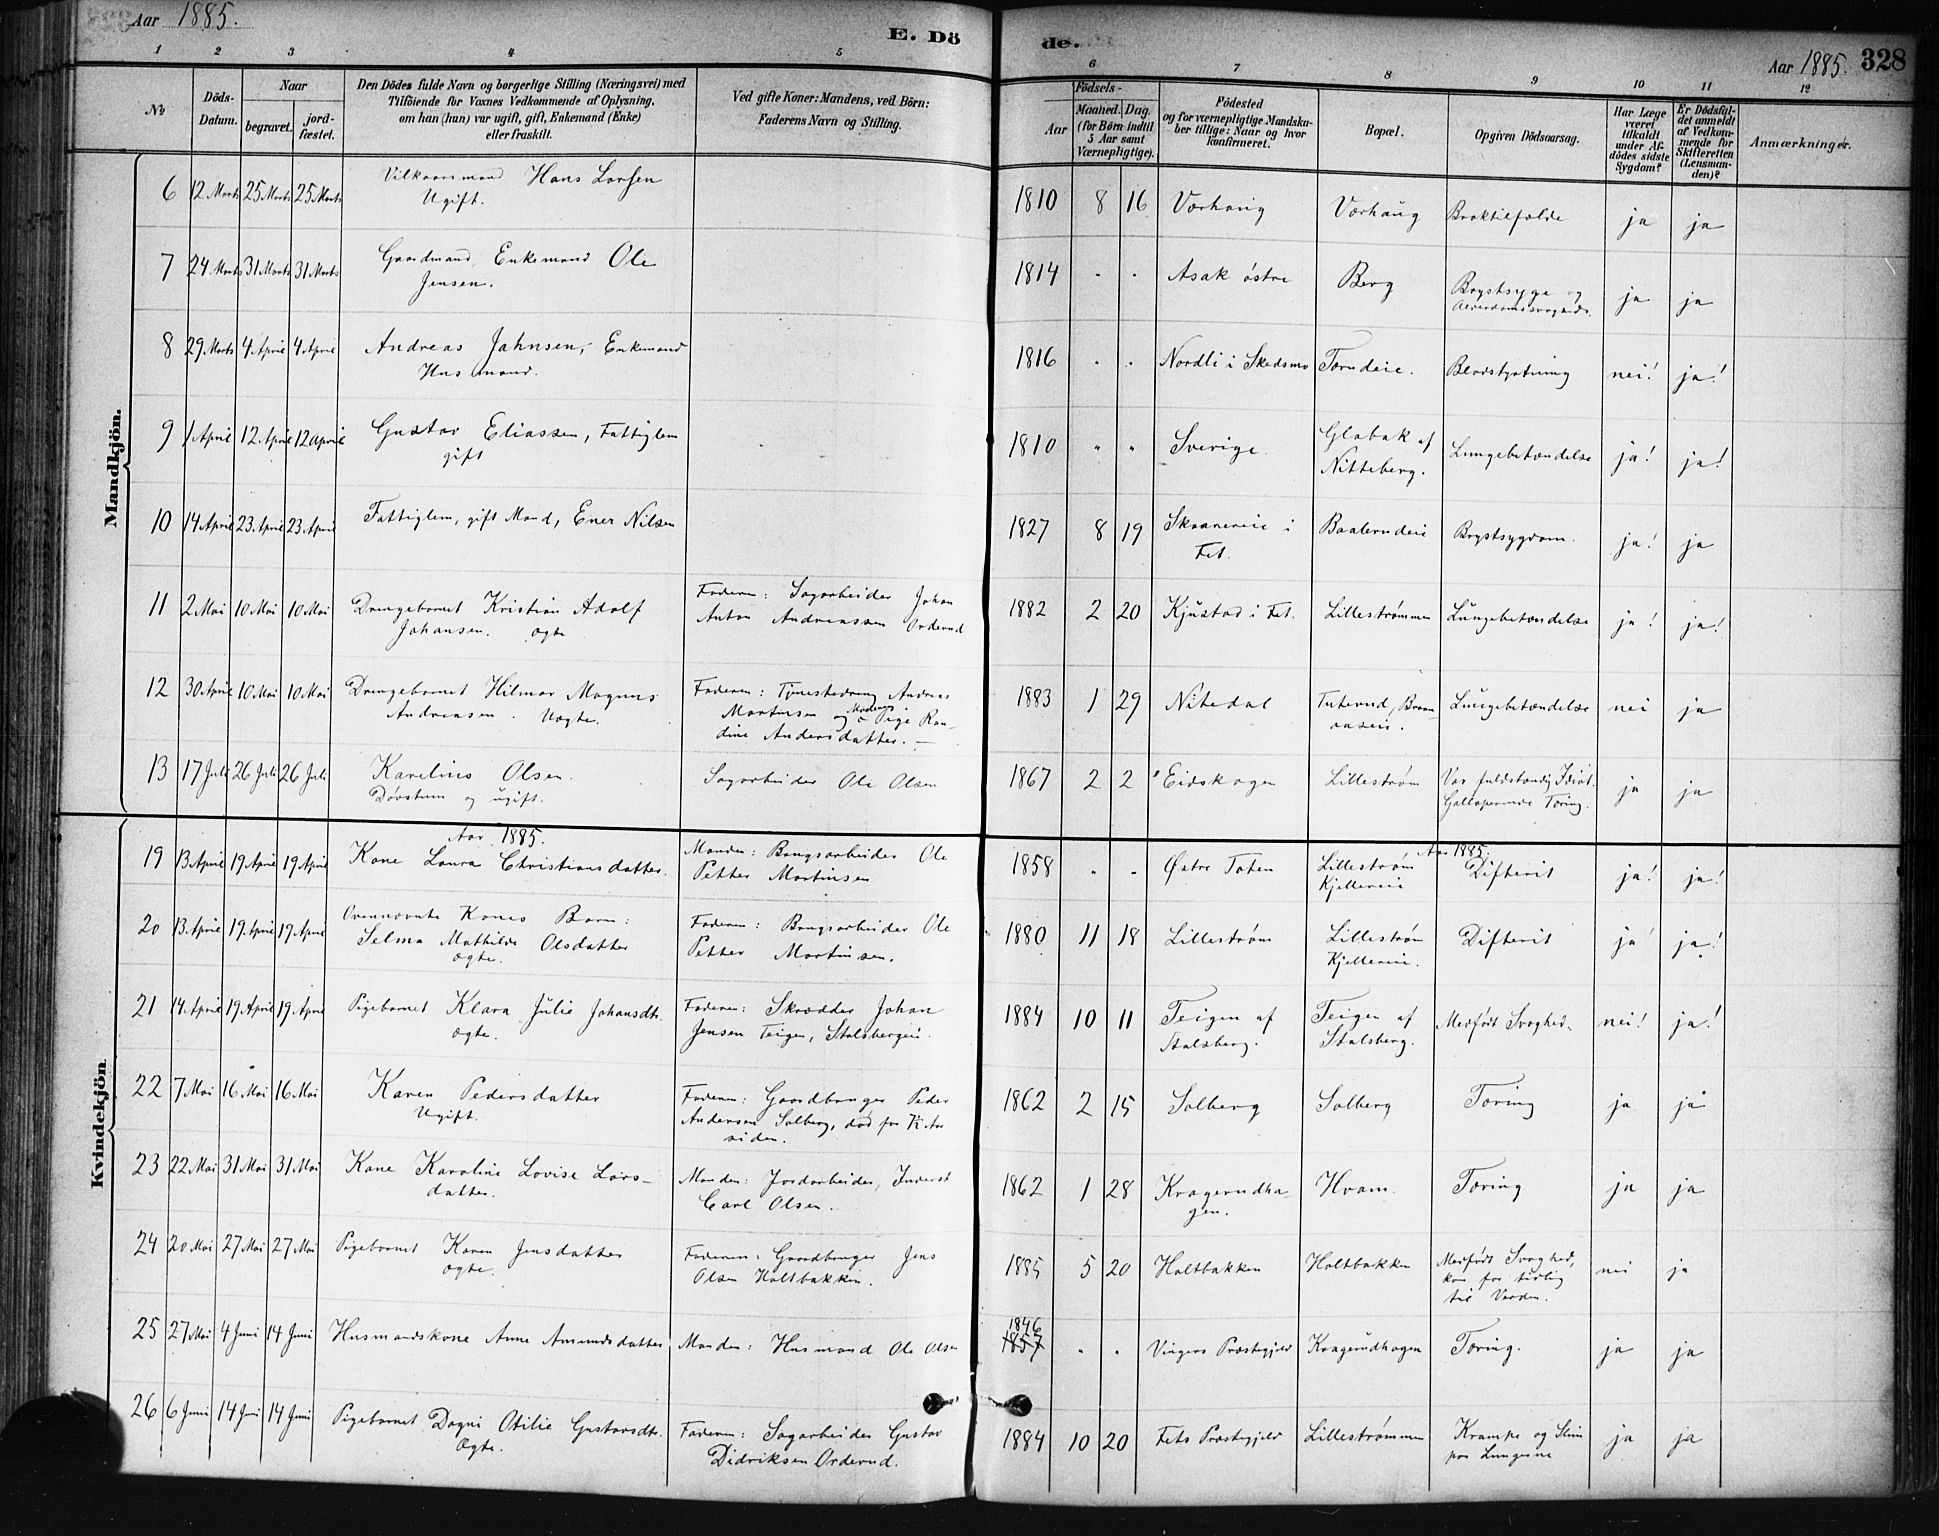 Aar 1885.
E. Dö
de.
Aar 1885.
328
1 2 3 4 5 6 7 8 9 10 11 12
No
Döds-Datum.
Naar
begravet.
jord-fæstet.
Den Dödes fulde Navn og borgerlige Stilling (Næringsvei) med
Tilföiende for Voxnes Vedkommende af Oplysning,
om han (hun) var ugift, gift, Enkemand (Enke)
eller fraskilt.
Ved gifte Koner: Mandens, ved Börn:
Faderens Navn og Stilling.
Födsels-
Aar
Maaned. Dag.
(for Börn indtil
5 Aar samt
Værnepligtige).
Födested
og for værnepligtige Mandskaber tillige: Naar og hvor
konfirmeret.
Bopæl.
Opgiven Dödsaarsag.
Har Læge
været
tilkaldt
under Af-
dödes sidste
Sygdom?
Er Dödsfal-
det anmeldt
af Vedkom-
mende for
Skifteretten
(Lensman-
den)?
Anmærkninger.
Mandkjön.
6 12 Marts 25 Marts 25 Marts Vilkaarsmand Hans Larsen 1810 8 16 Vorhaug Vorhaug Braktilfælde ja ja
Ugift.
7 24 Marts 31 Marts 31 Marts Gaardmand, Enkemand Ole 1814 " " Asak östre Berg Brystsyge og ja ja
Jensen. Alderdomssvaghed.
8 29 Marts 4 April 4 April Andreas Jahnsen, Enkemand 1816 " " Nordli i Skedsmo Torudeie. Blodstyrtning nei! ja!
Husmand.
9 1 April 12 April 12 April Gustav Eliassen, Fattiglem 1810 " " Sverige. Glabak af Lungebetændelse ja! ja!
gift Nitteberg.
10 14 April 23 April 23 April Fattiglem, gift Mand, Ener Nilsen 1827 8 19 Skraanereie i Baalerudeie Brystsygdom. ja! ja
Fet.
11 2 Mai 10 Mai 10 Mai Drengebarnet Kristian Adolf Faderen: Sagarbeider Johan 1882 2 20 Kjustad i Fet. Lillestrømmen Lungebetændelse ja! ja!
Johansen. ægte Anton Andreassen Orderud
12 30 April 10 Mai 10 Mai Drengebarnet Hilmar Magnus Faderen: Tjenestedreng Andreas 1883 1 29 Nitedal Tuterud, Braanaaseie. Lungebetændelse nei ja
Andreasen. Uægte. Martinsen og Moderens Pige Ran-
dine Andersdatter.
13 17 Juli 26 Juli 26 Juli Karelius Olsen. Sagarbeider Ole Olsen 1867 2 2 Eidskogen Lillestrøm Var fuldstændig Idiot. ja ja
Døvstum og ugift. Galloperende Tæring.
Kvindekjön
Aar 1885. Aar 1885.
19 13 April 19 April 19 April Kone Laura Christiansdatter. Manden: Bangsarbeider Ole 1858 " " Østre Toten Lillestrøm Difterit ja! ja!
Petter Martinsen Kjellereie
20 13 April 19 April 19 April Ovennævnte Kones Barn: Faderen: Bangsarbeider Ole 1880 11 18 Lillestrøm Lillestrøm Difterit ja! ja!
Selma Mathilde Olsdatter Petter Martinsen. Kjellereie.
ægte.
21 14 April 19 April 19 April Pigebarnet Klara Julie Johansdtr. Faderen: Skrædder Johan 1884 10 11 Teigen af Teigen af Medfødt Svaghed. nei! ja!
ægte. Jensen Teigen, Stalsbergeie. Stalsberg. Stalsberg.
22 7 Mai 16 Mai 16 Mai Karen Pedersdatter Faderen: Gaardbruger Peder 1862 2 15 Solberg Solberg Tæring ja ja
Ugift. Andersen Solberg, død for ½ Aar
siden.
23 22 Mai 31 Mai 31 Mai Kone Karoline Lovise Lars- Manden: Jordarbeider, Inderst 1862 1 28 Kragerudha- Hvam. Tæring ja ja
datter. Carl Olsen. gen.
24 20 Mai 27 Mai 27 Mai Pigebarnet Karen Jensdatter Faderen: Gaardbruger Jens 1885 5 20 Holtbakken Holtbakken Medfødt Svaghed, nei ja
ægte Olsen Holtbakken. kom for tidlig
til Verden.
25 27 Mai 4 Juni 14 Juni Husmandskone Anne Amundsdatter Manden: Husmand Ole Olsen 1846 1857 " " Vingers Præstegjeld Kragerudhagen Tæring. ja ja
26 6 Juni 14 Juni 14 Juni Pigebarnet Dagni Otilie Gustavsdtr. Faderen: Sagarbeider Gustav 1884 10 20 Fets Præstegjeld Lillestrømmen Krampe og Slim ja ja
Ægte. Didriksen Orderud. paa Lungerne